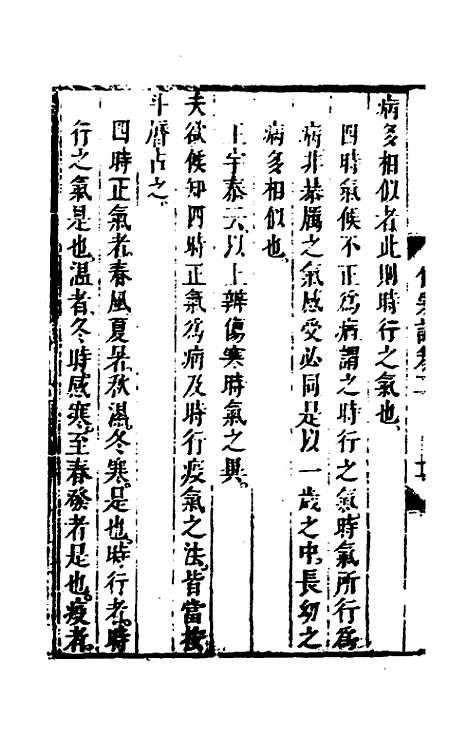 病多相似者此則時行之氣也
四時氣候不正爲病謂之時行之氣時氣所行爲
病非暴厲之氣感受必同是以一歲之中長幼之
病多相似也
王宇泰云以上辨傷寒時氣之異
夫欲候知四時正氣爲病及時行疫氣之法皆當按
斗曆占之
四時正氣者春風夏暑秋濕冬寒是也時行者時
行之氣是也溫者冬時感寒至春發者是也疫者